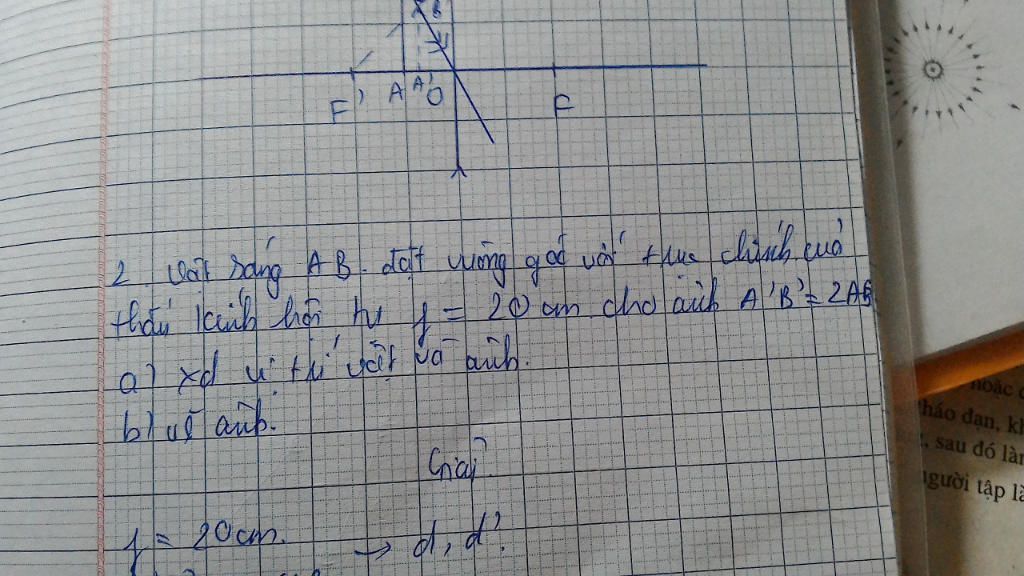 B
F' A A' O F
2. Vật sáng AB đặt vuông góc với trục chính của
thấu kính hội tụ f = 20 cm cho ảnh A'B' = 2AB
a) xđ vị trí vật và ảnh.
b) vẽ ảnh.
Giải
f = 20cm.
→ d, d'?
hoặc
háo đạn, kh
, sau đó làm
người tập là